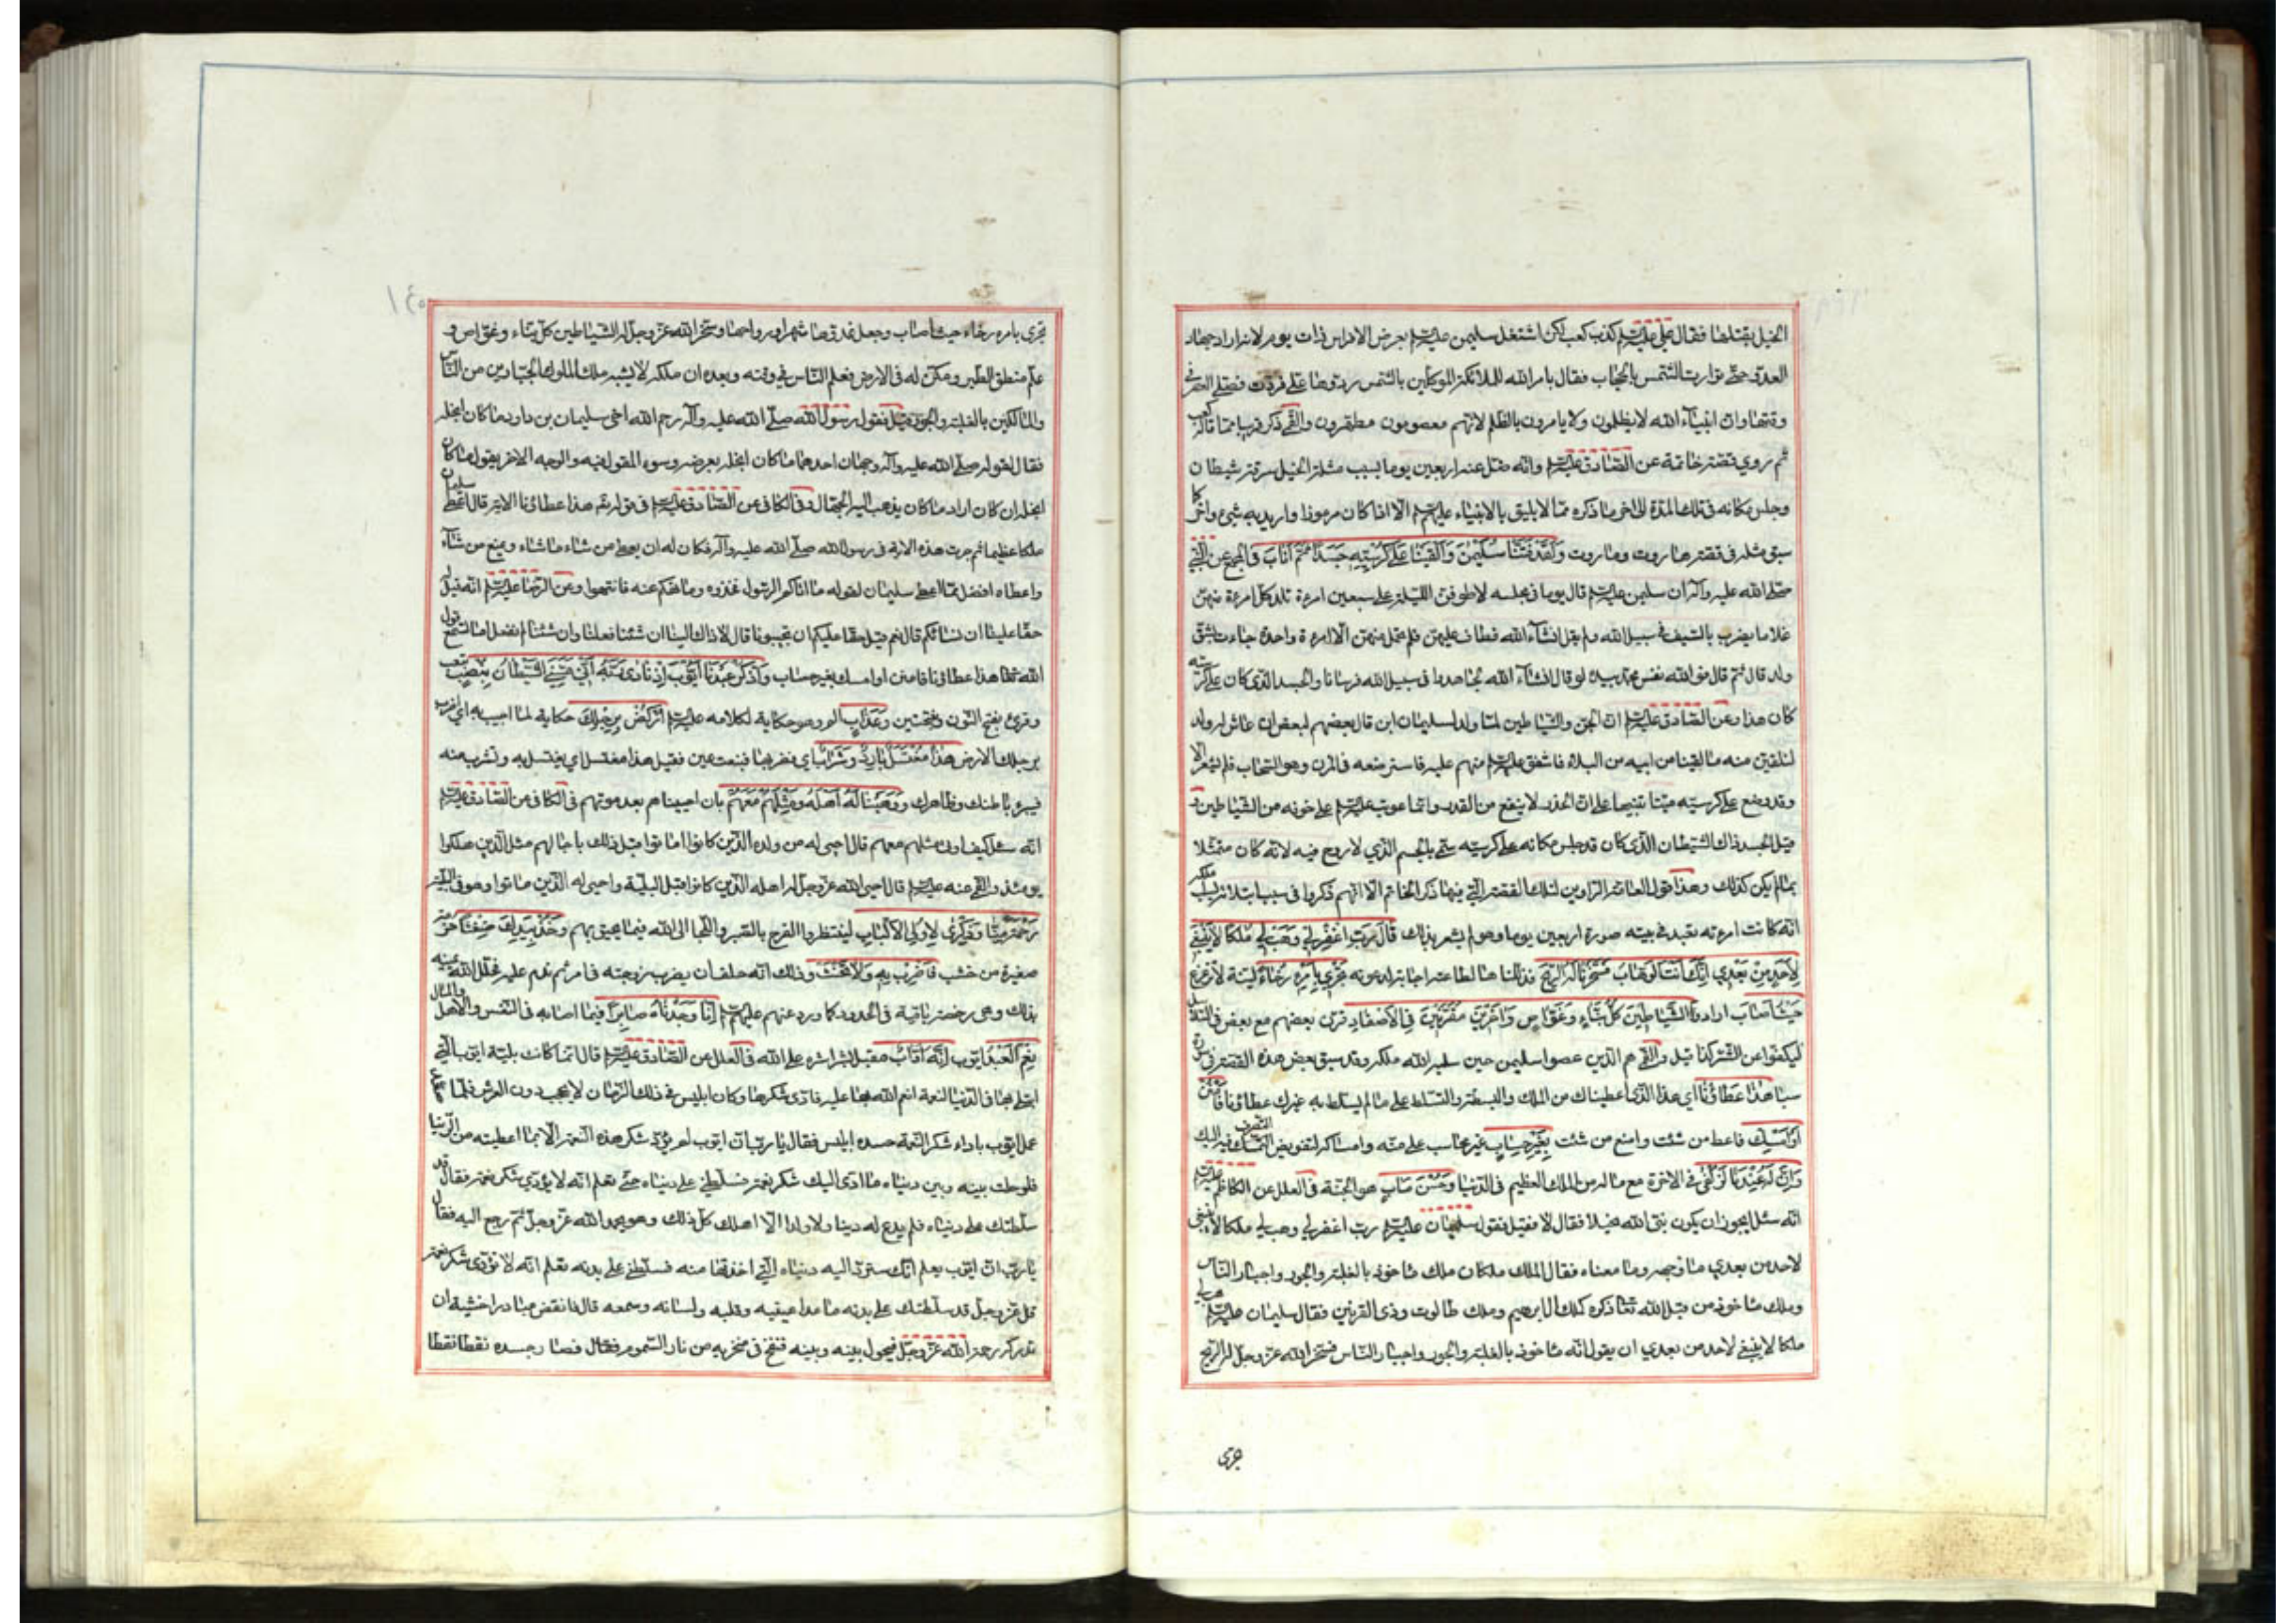 الخيل بقتلها فقال علي عليه السلام كذب كعب لكن اشتغل سليمن عليه السلام بعرض الافراس ذات يوم لانه اراد جهاد
العدو حتى توارت الشمس بالحجاب فقال بامر الله للملائكة الموكلين بالشمس ردوها علي فردت فصلى العصر في
وقتها وان انبياء الله لا يظلمون ولا يامرون بالظلم لانهم معصومون مطهرون والقمي ذكر قريبا مما قاله كعب
ثم روي قصة خاتمه عن الصادق عليه السلام وانه ضل عنه اربعين يوما بسبب قتله الخيل سرقه شيطان
وجلس مكانه في تلك المدة الى اخر ما ذكره مما لا يليق بالانبياء عليهم السلام الا اذا كان مرموزا واريد به شيء واخر كما
سبق مثله في قصة هاروت وماروت وَلَقَدْ فَتَنَّا سُلَيْمٰنَ وَاَلْقَيْنَا عَلٰى كُرْسِيِّهِ جَسَدًا ثُمَّ اَنَابَ في المجمع عن النبي
صلى الله عليه وآله ان سليمن عليه السلام قال يوما في مجلسه لاطوفن الليلة على سبعين امرءة تلد كل امرءة منهن
غلاما يضرب بالسيف في سبيل الله ولم يقل انشآء الله فطاف عليهن فلم تحمل منهن الا امرءة واحدة جاءت بشق
ولد قال ثم قال فو الله نفس محمد بيده لو قال انشآء الله لجاهدوا في سبيل الله فرسانا والجسد الذي كان على كرسيه
كان هذا وعن الصادق عليه السلام ان الجن والشياطين لما ولد لسليمان ابن قال بعضهم لبعض ان عاش له ولد
لنلقين منه ما لقينا من ابيه من البلاء فاشفق عليه السلام منهم عليه فاسترضعه في المزن وهو السحاب فلم يشعر الا
وقد وضع على كرسيه ميتا تنبيها على ان الحذر لا ينفع من القدر وانما عوتب عليه السلام على خوفه من الشياطين و
قيل الجسد ذاك الشيطان الذي كان قد جلس مكانه على كرسيه سمي بالجسم الذي لا روح فيه لانه كان متمثلا
بما لم يكن كذلك وهذا قول العامة الراوين لتلك القصة التي فيها ذكر الخاتم الا انهم ذكروا في سبب ابتلائه بسلب ملكه
انه كانت امرءته تعبد في بيته صورة اربعين يوما وهو لم يشعر بذلك قَالَ رَبِّ اغْفِرْ لِي وَهَبْ لِي مُلْكًا لَا يَنْبَغِي
لِاَحَدٍ مِنْ بَعْدِي اِنَّكَ اَنْتَ الْوَهَّابُ فَسَخَّرْنَا لَهُ الرِّيحَ فذللنا ها لطاعته اجابة لدعوته تَجْرِي بِاَمْرِهِ رُخَاءً لينة لا تزعزع
حَيْثُ اَصَابَ اراد وَالشَّيَاطِينَ كُلَّ بَنَّاءٍ وَغَوَّاصٍ وَاٰخَرِينَ مُقَرَّنِينَ فِي الْاَصْفَادِ قرن بعضهم مع بعض في السلاسل
ليكفوا عن الشر كذا قيل والقمي هم الذين عصوا سليمن حين سلبه الله ملكه وقد سبق بعض هذه القصة في سورة
سبا هٰذَا عَطَاؤُنَا اي هذا الذي اعطيناك من الملك والبسطة والتسلط على ما لم يسلط به غيرك عطاؤنا فَامْنُنْ
اَوْ اَمْسِكْ فاعط من شئت وامنع من شئت بِغَيْرِ حِسَابٍ غير محاسب على منه وامساكه لتفويض التصرف فيه اليك
وَاِنَّ لَهُ عِنْدَنَا لَزُلْفٰى في الاخرة مع ماله من الملك العظيم في الدنيا وَحُسْنَ مَاٰبٍ هو الجنة في العلل عن الكاظم عليه السلام
انه سئل ايجوز ان يكون نبي الله بخيلا فقال لا فقيل فقول سليمان عليه السلام رب اغفر لي وهب لي ملكا لا ينبغي
لاحد من بعدي ما وجهه وما معناه فقال الملك ملكان ملك ماخوذ بالغلبة والجور واجبار الناس
وملك ماخوذ من قبل الله تعا ذكره كملك ال ابرهيم وملك طالوت وذي القرنين فقال سليمان عليه السلام هب لي
ملكا لا ينبغي لاحد من بعدي ان يقول انه ماخوذ بالغلبة والجور واجبار الناس فسخر الله عز وجل له الريح
تجري
تجري بامره رخاء حيث اصاب وجعل غدوها شهرا ورواحها وسخر الله عز وجل له الشياطين كل بناء وغواص و
علم منطق الطير ومكن له في الارض فعلم الناس في وقته وبعده ان ملكه لا يشبه ملك الملوك الجبارين من الناس
والمالكين بالغلبة والجور قيل فقول رسول الله صلى الله عليه وآله رحم الله اخي سليمان بن داود ما كان ابخله
فقال لقوله صلى الله عليه وآله وجهان احدهما ما كان ابخله بعرضه وسوء القول فيه والوجه الاخر يقول ما كان
ابخله ان كان اراد ما كان يذهب اليه الجهال وفي الكافي عن الصادق عليه السلام في قوله تع هذا عطاؤنا الاية قال اعطى سليمان
ملكا عظيما ثم جرت هذه الاية في رسول الله صلى الله عليه وآله فكان له ان يعطي من شاء ما شاء ويمنع من شآء
واعطاه افضل مما اعطى سليمان لقوله ما اتاكم الرسول فخذوه وما نهيكم عنه فانتهوا وعن الرضا عليه السلام انه قيل له
حقا علينا ان نسئلكم قال نعم قيل حقا عليكم ان تجيبونا قال لا ذاك الينا ان شئنا فعلنا وان شئنا لم نفعل اما تسمع قول
الله تعا هذا عطاؤنا فامنن او امسك بغير حساب وَاذْكُرْ عَبْدَنَا اَيُّوبَ اِذْ نَادٰى رَبَّهُ اَنِّي مَسَّنِيَ الشَّيْطَانُ بِنُصْبٍ تعب
وقرئ بفتح النون وبفتحتين وَعَذَابٍ الم وهو حكاية لكلامه عليه السلام اُرْكُضْ بِرِجْلِكَ حكاية لما اجيب به اي اضرب
برجلك الارض هٰذَا مُغْتَسَلٌ بَارِدٌ وَشَرَابٌ اي فضربها فنبعت عين فقيل هذا مغتسل اي يغتسل به وتشرب منه
فيبرء باطنك وظاهرك وَوَهَبْنَا لَهُ اَهْلَهُ وَمِثْلَهُمْ مَعَهُمْ بان احييناهم بعد موتهم في الكافي عن الصادق عليه السلام
انه سئل كيف اوتي مثلهم معهم قال احيى له من ولده الذين كانوا ماتوا قبل ذلك باجالهم مثل الذين هلكوا
يومئذ والقمي عنه عليه السلام قال احيى الله عز وجل له اهله الذين كانوا قبل البلية واحيى له الذين ماتوا وهو في البلية
رَحْمَةً مِنَّا وَذِكْرٰى لِاُولِي الْاَلْبَابِ لينتظروا الفرج بالصبر والجا الى الله فيما يحيق بهم وَخُذْ بِيَدِكَ ضِغْثًا حزمة
صغيرة من خشب فَاضْرِبْ بِهِ وَلَا تَحْنَثْ وذلك انه حلف ان يضرب زوجته في امر ثم ندم عليه فحلل الله يمينه
بذلك وهي رخصة باقية في الحدود كما ورد عنهم عليهم السلام اِنَّا وَجَدْنَاهُ صَابِرًا فيما اصابه في النفس والاهل والمال
نِعْمَ الْعَبْدُ ايوب اِنَّهُ اَوَّابٌ مقبل بشراشره على الله في العلل عن الصادق عليه السلام قال انما كانت بلية ايوب التي
ابتلي بها في الدنيا لنعمة انعم الله بها عليه فادى شكرها وكان ابليس في ذلك الزمان لا يحجب دون العرش فلما صعد
عمل ايوب باداء شكر النعمة حسده ابليس فقال يا رب ان ايوب لم يؤد شكر هذه النعمة الا بما اعطيته من الدنيا
فلو حلت بينه وبين دنياه ما ادى اليك شكر نعمة فسلطني على دنياه حتى تعلم انه لا يؤدي شكر نعمة فقال قد
سلطتك على دنياه فلم يدع له دنيا ولا ولدا الا اهلك كل ذلك وهو يحمد الله عز وجل ثم رجع اليه فقال
يا رب ان ايوب يعلم انك سترد اليه دنياه التي اخذتها منه فسلطني على بدنه تعلم انه لا يؤدي شكر نعمة
قال عز وجل قد سلطتك على بدنه ما عدا عينيه وقلبه ولسانه وسمعه قال فانقض مبادرا خشية ان
تدركه رحمة الله عز وجل فيحول بينه وبينه فنفخ في منخريه من نار السموم فصار جسده نقطا نقطا